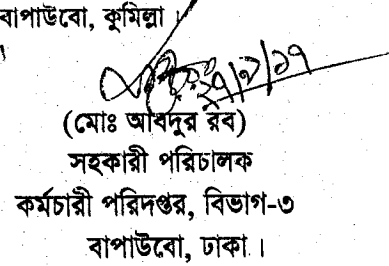 বাপাউবো, কুমিল্লা।
২৭/৯/১৭
(মোঃ আবদুর রব)
সহকারী পরিচালক
কর্মচারী পরিদপ্তর, বিভাগ-৩
বাপাউবো, ঢাকা।